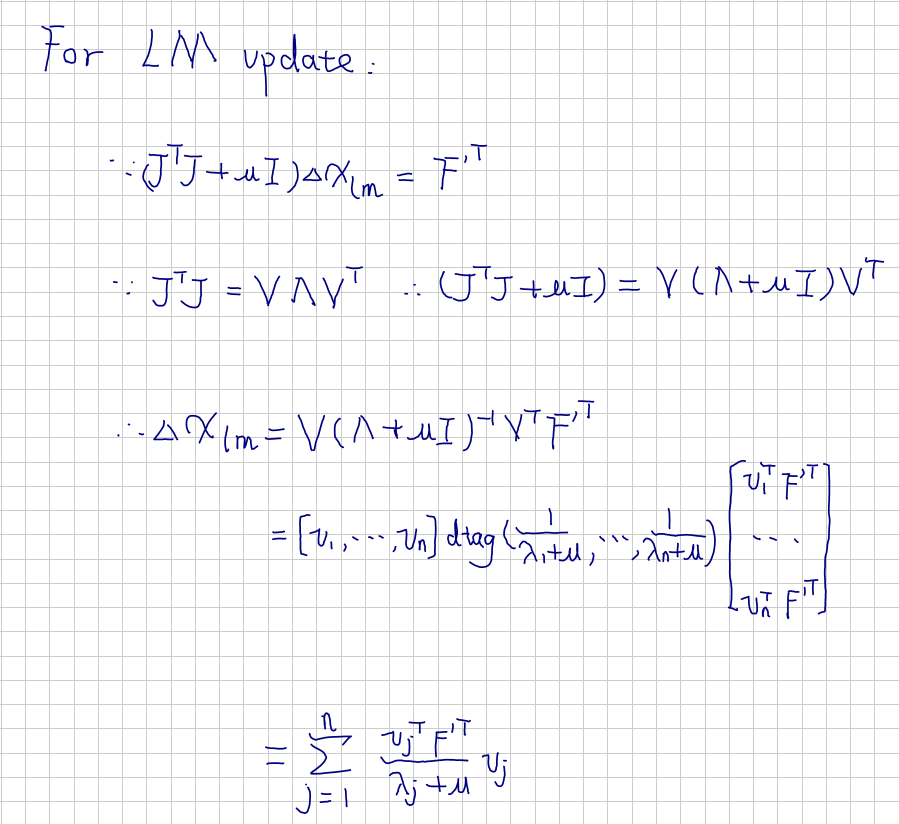 For LM update:
∵ (JᵀJ + μI)Δx_lm = F'ᵀ
∵ JᵀJ = VΛVᵀ ∴ (JᵀJ + μI) = V(Λ + μI)Vᵀ
∴ Δx_lm = V(Λ + μI)⁻¹VᵀF'ᵀ
= [v₁, ..., vₙ] diag(1/(λ₁+μ), ..., 1/(λₙ+μ)) [v₁ᵀF'ᵀ ... vₙᵀF'ᵀ]
= Σ_{j=1}^{n} (vⱼᵀF'ᵀ)/(λⱼ+μ) vⱼ